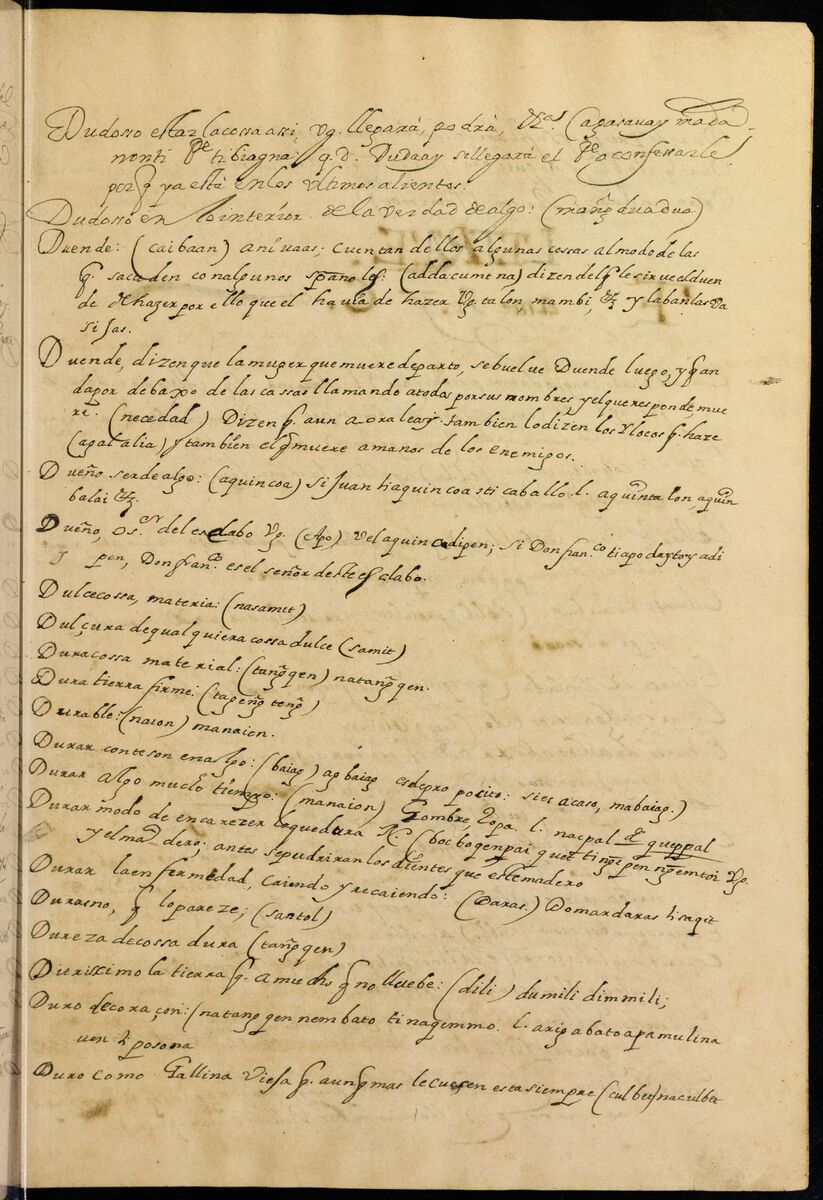 Dudosso estar la cossa assi, vg. llegará, podrá, &.as (agasauay mada
nonti P.e tibiagna) q.d. Dudaay sellegará el P.e o confessarle,
porq̃ ya está en los vltimos alientos.
Dudosso en lo interior de la verdad de algo: (mañg̃ duadua)
Duende: (caibaan) aniuaas; cuentan dellos algunas cossas al modo de las
q̃. saceden con algunos spanoles: (addacumtna) dizen del q̃ le sirue el duen
de de hazer por ello que el hauia de hazer vg. talon, mambi, &.g y laban las va
sijas.
Duende, dizen que la muger que muere de parto, se buelue Duende luego, y q̃ an
da por debaxo de las cassas llamando a todas por sus nombres y el que responde mue
re. (necedad) Dizen q̃. aun aora leay. tambien lo dizen los Ylocos q̃. haze
(apatalia) y tambien el q̃ muere a manos de los enemigos.
Dueño ser de algo: (aquincoa) si Juan h aquincoa sti caballo. l. aquinta lon, aquin
balai &.g
Dueño, o s.or del esclabo vg. (Apo) vel aquin cadipen; si Don fran.co ti apo daytoy adi
pen, Don fran.co es el señor deste esclabo.
Dulce cossa, materia: (nasamit)
Dulçura de qualquiera cossa dulce (samit)
Dura cossa material: (tang̃qen) natang̃qen.
Dura tierra firme: (tageng̃teng̃)
Durable: (naion) manaion.
Durar con teson en algo: (baiag) ag baiag es de proposito: si es acaso, mabaiag.)
Durar algo mucho tiempo: (manaion) hombre ropa. l. nacpal de queppal
Durar modo de encarezer lo que dura &.c (bocbogenpai quet ti ng̃ipen ng̃em toi vg.
y el mad.o dero; antes se pudriran los dientes que este madero
Durar la enfermedad, caiendo y recaiendo: (daras.) Domardaras ti saqit
Durasno, q̃ lo pareze; (santol)
Dureza de cossa dura (tang̃qen)
Durissimo la tierra q̃. a mucho q̃ no lluebe: (dili) dumili dimmili;
Duro de coraçon: (natang̃qen nem bato ti naqemmo. l. arig̃ a bato apamulina
uen ti posona
Duro como Gallina vieja q̃. aunq̃ mas le cuezen esta siempre (culbet) naculbet